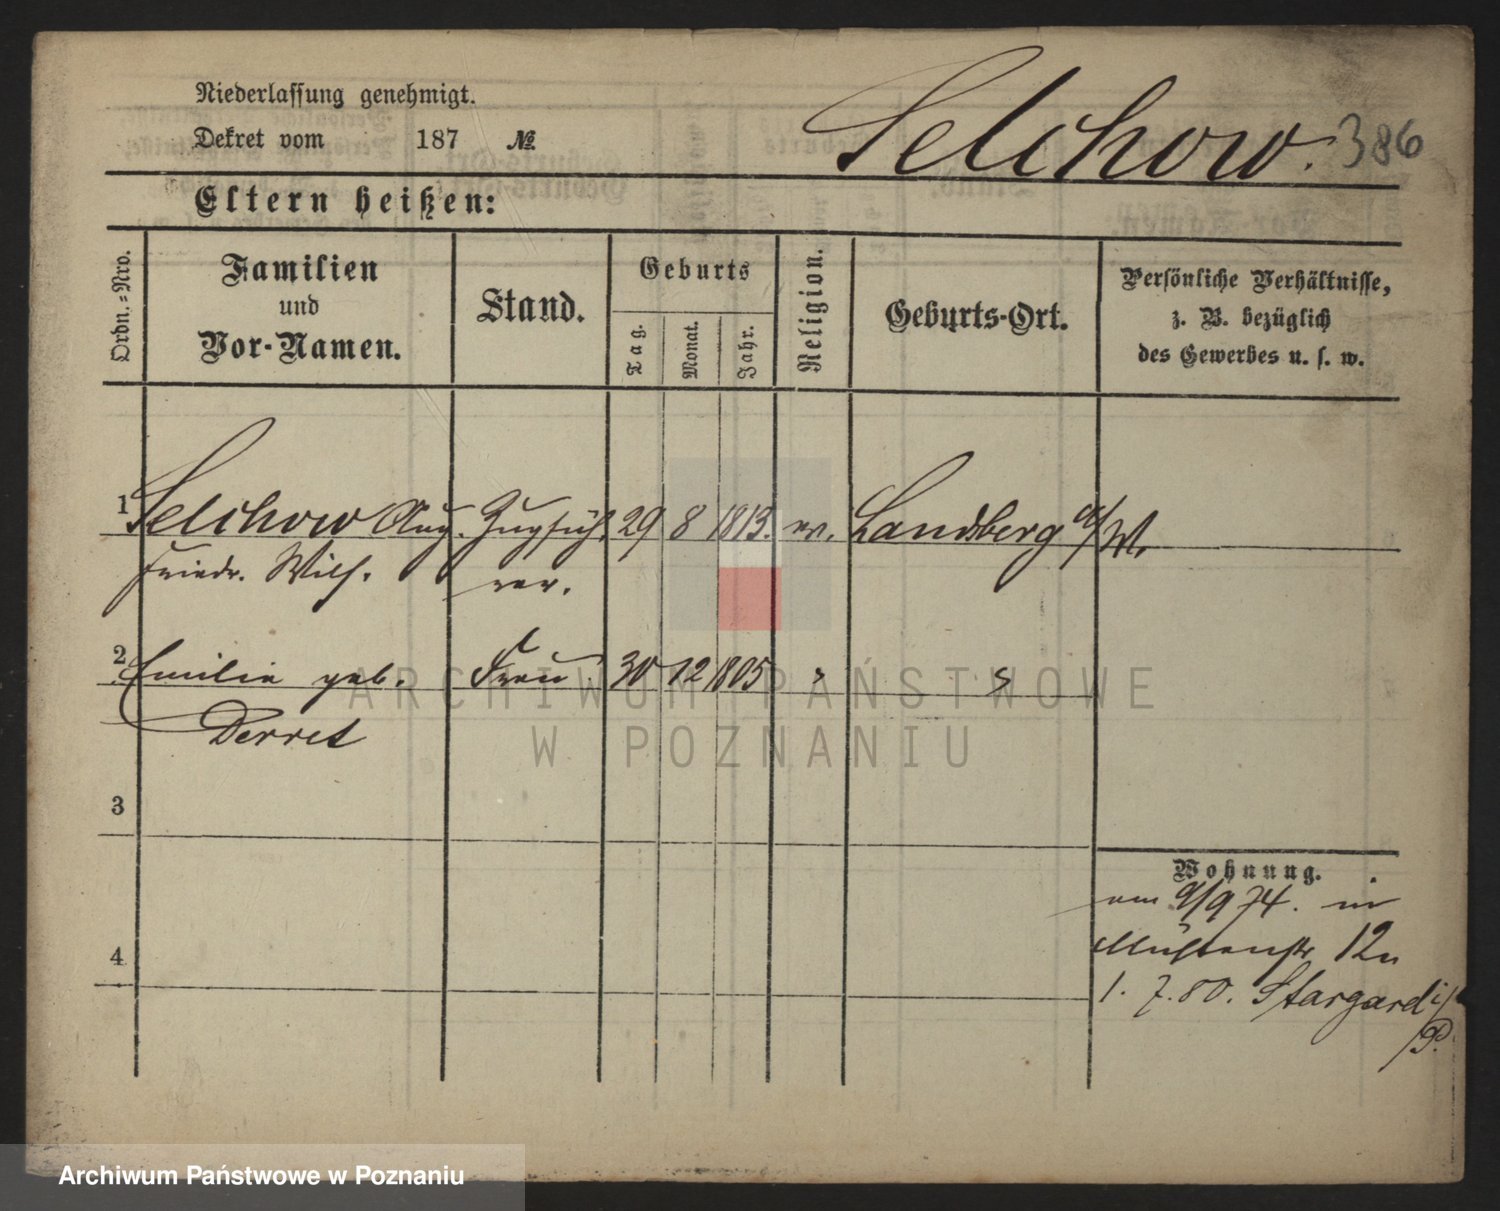 Niederlassung genehmigt.
Dekret vom 187 №
Selchow. 386
Eltern heißen:
Ordn.=Nro.
Familien
und
Vor-Namen.
Stand.
Geburts
Tag.
Monat.
Jahr.
Religion.
Geburts-Ort.
Persönliche Verhältnisse,
z. B. bezüglich
des Gewerbes u. s. w.
1 Selchow Aug. Zugfüh 29 8 1813. ev. Landsberg a/W.
Friedr. Wilh. rer.
2 Emilie geb. Frau 30 12 1805 " "
Derret
3
Wohnung.
am 9/9 74. in
Mühlenstr 12
4
1. 7. 80. Stargard i/
P.
ARCHIWUM PAŃSTWOWE
W POZNANIU
Archiwum Państwowe w Poznaniu